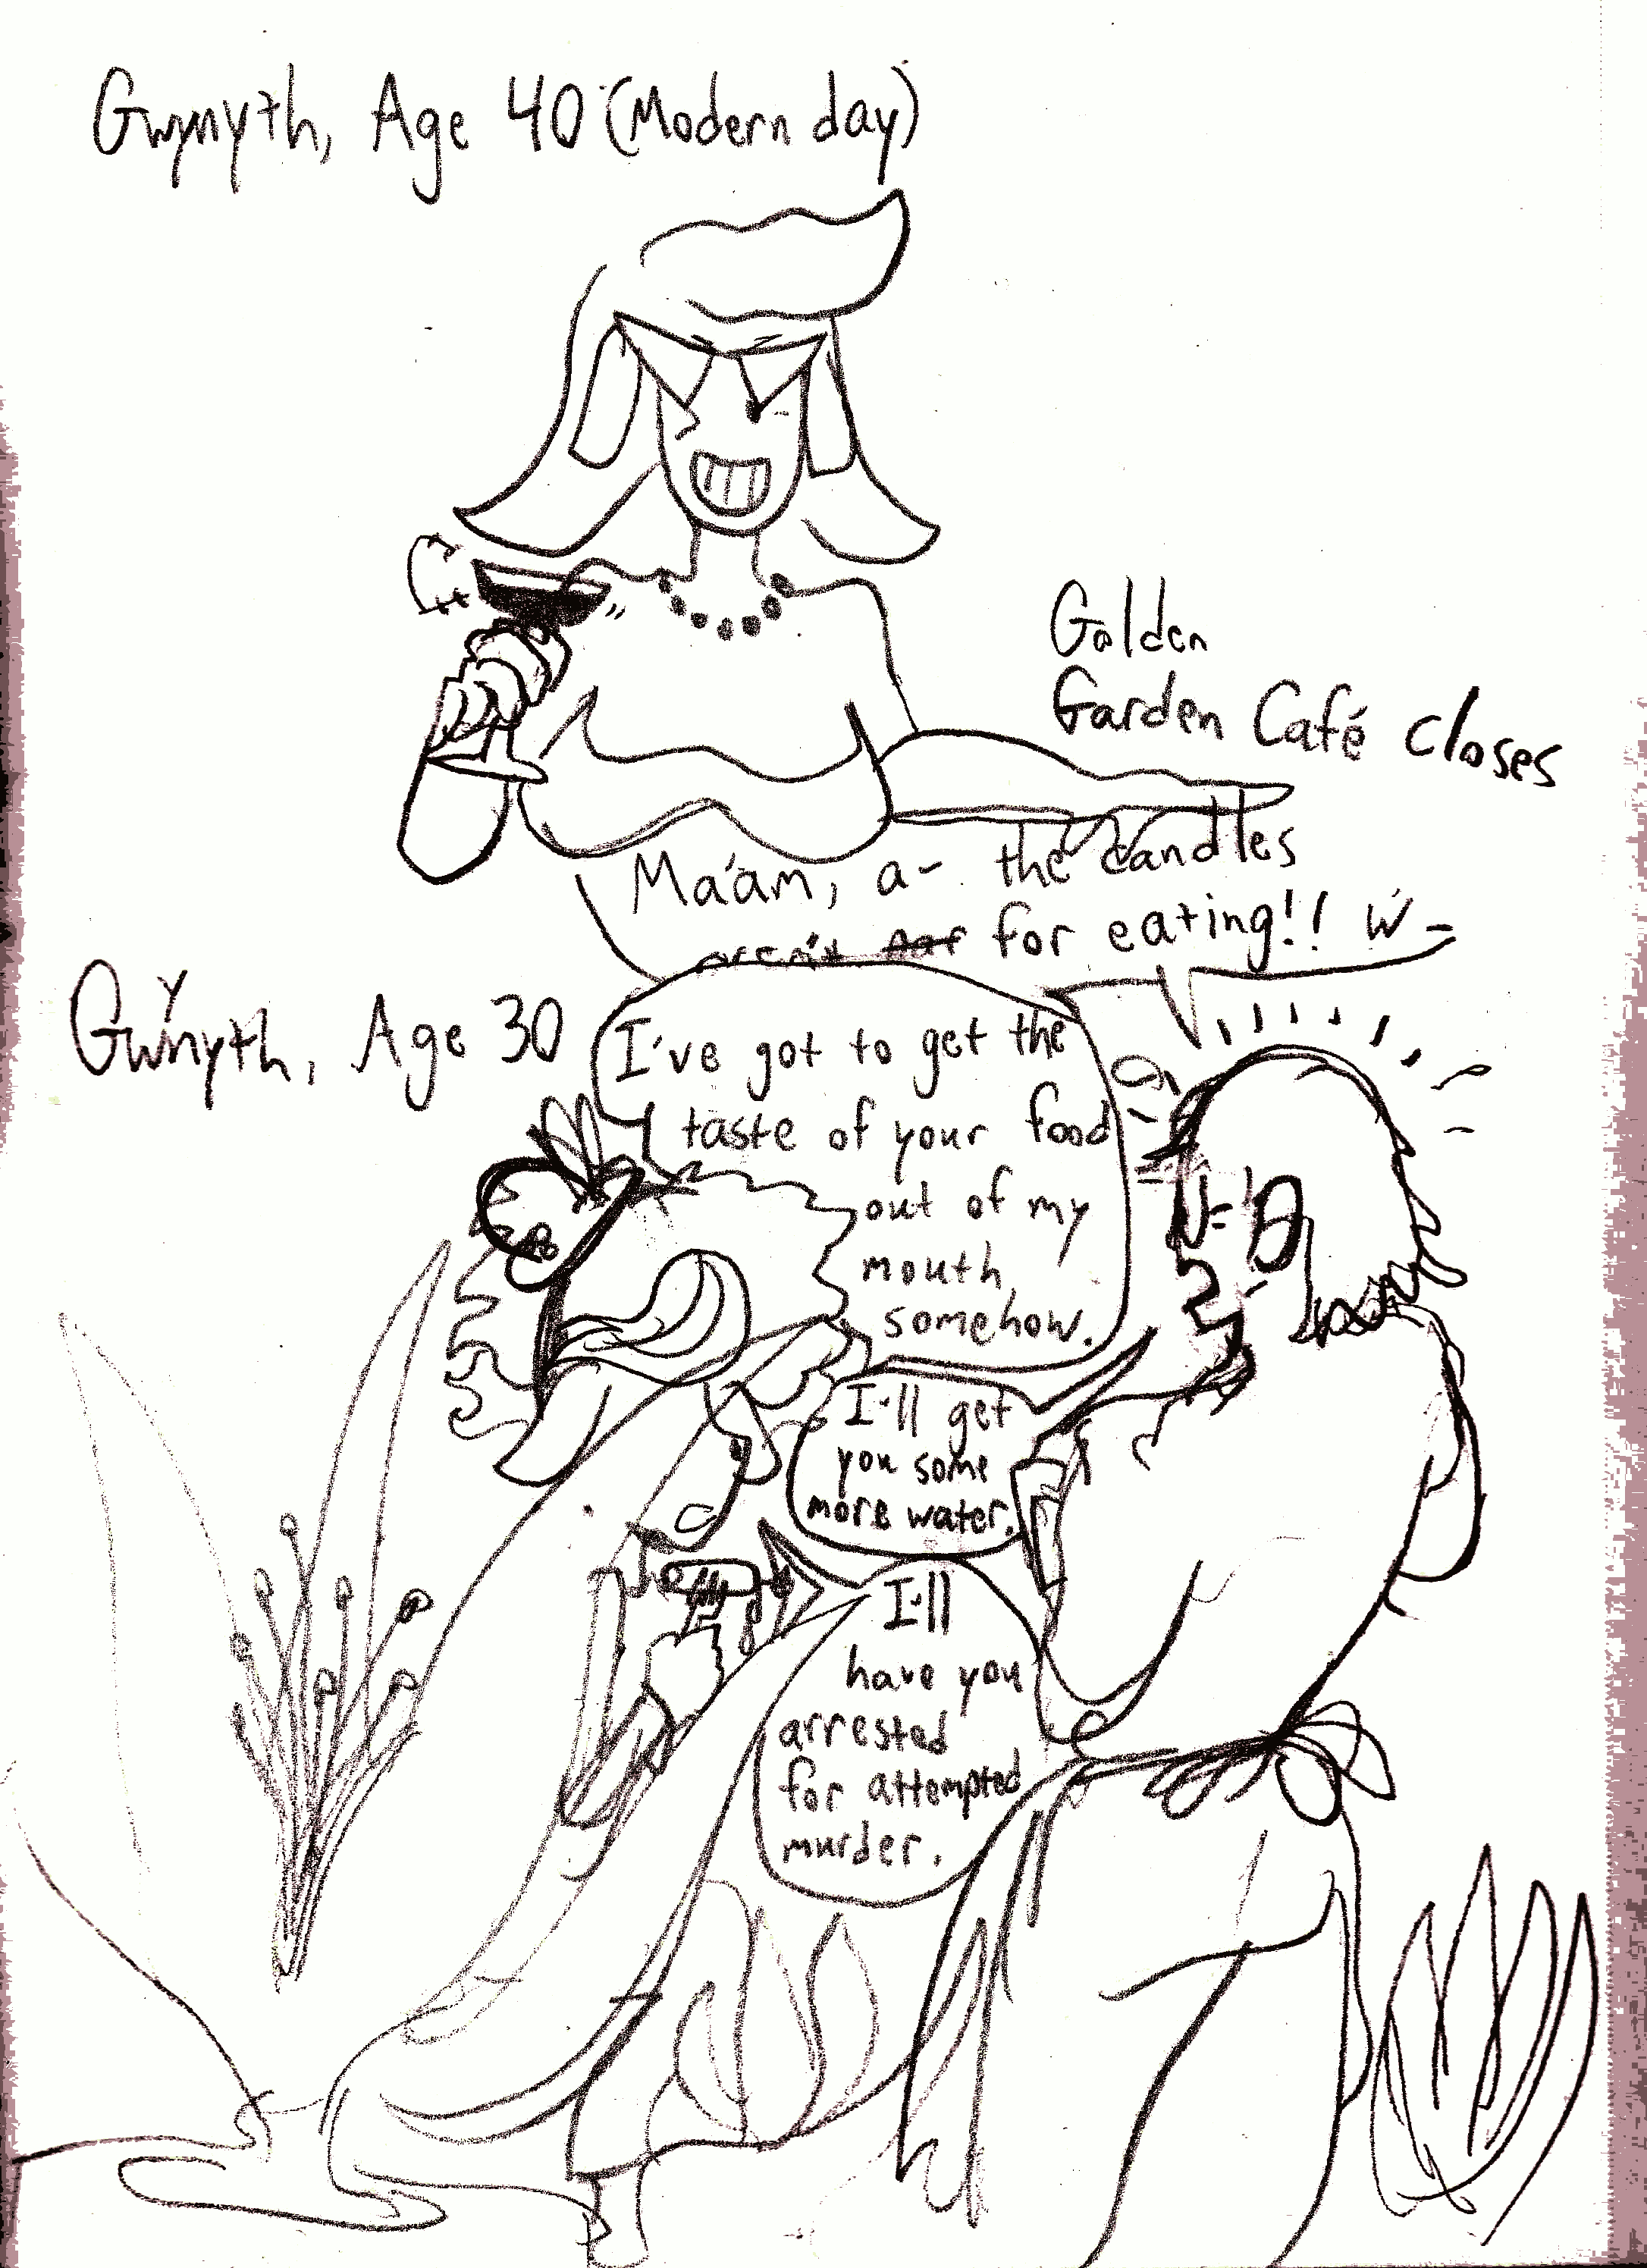 Gwynyth, Age 40 (Modern day)
Golden
Garden Café closes
Ma'am, a- the candles
aren't for eating!! W-
Gwynyth, Age 30
I've got to get the
taste of your food
out of my
mouth
somehow.
I'll get
you some
more water.
I'll
have you
arrested
for attempted
murder.